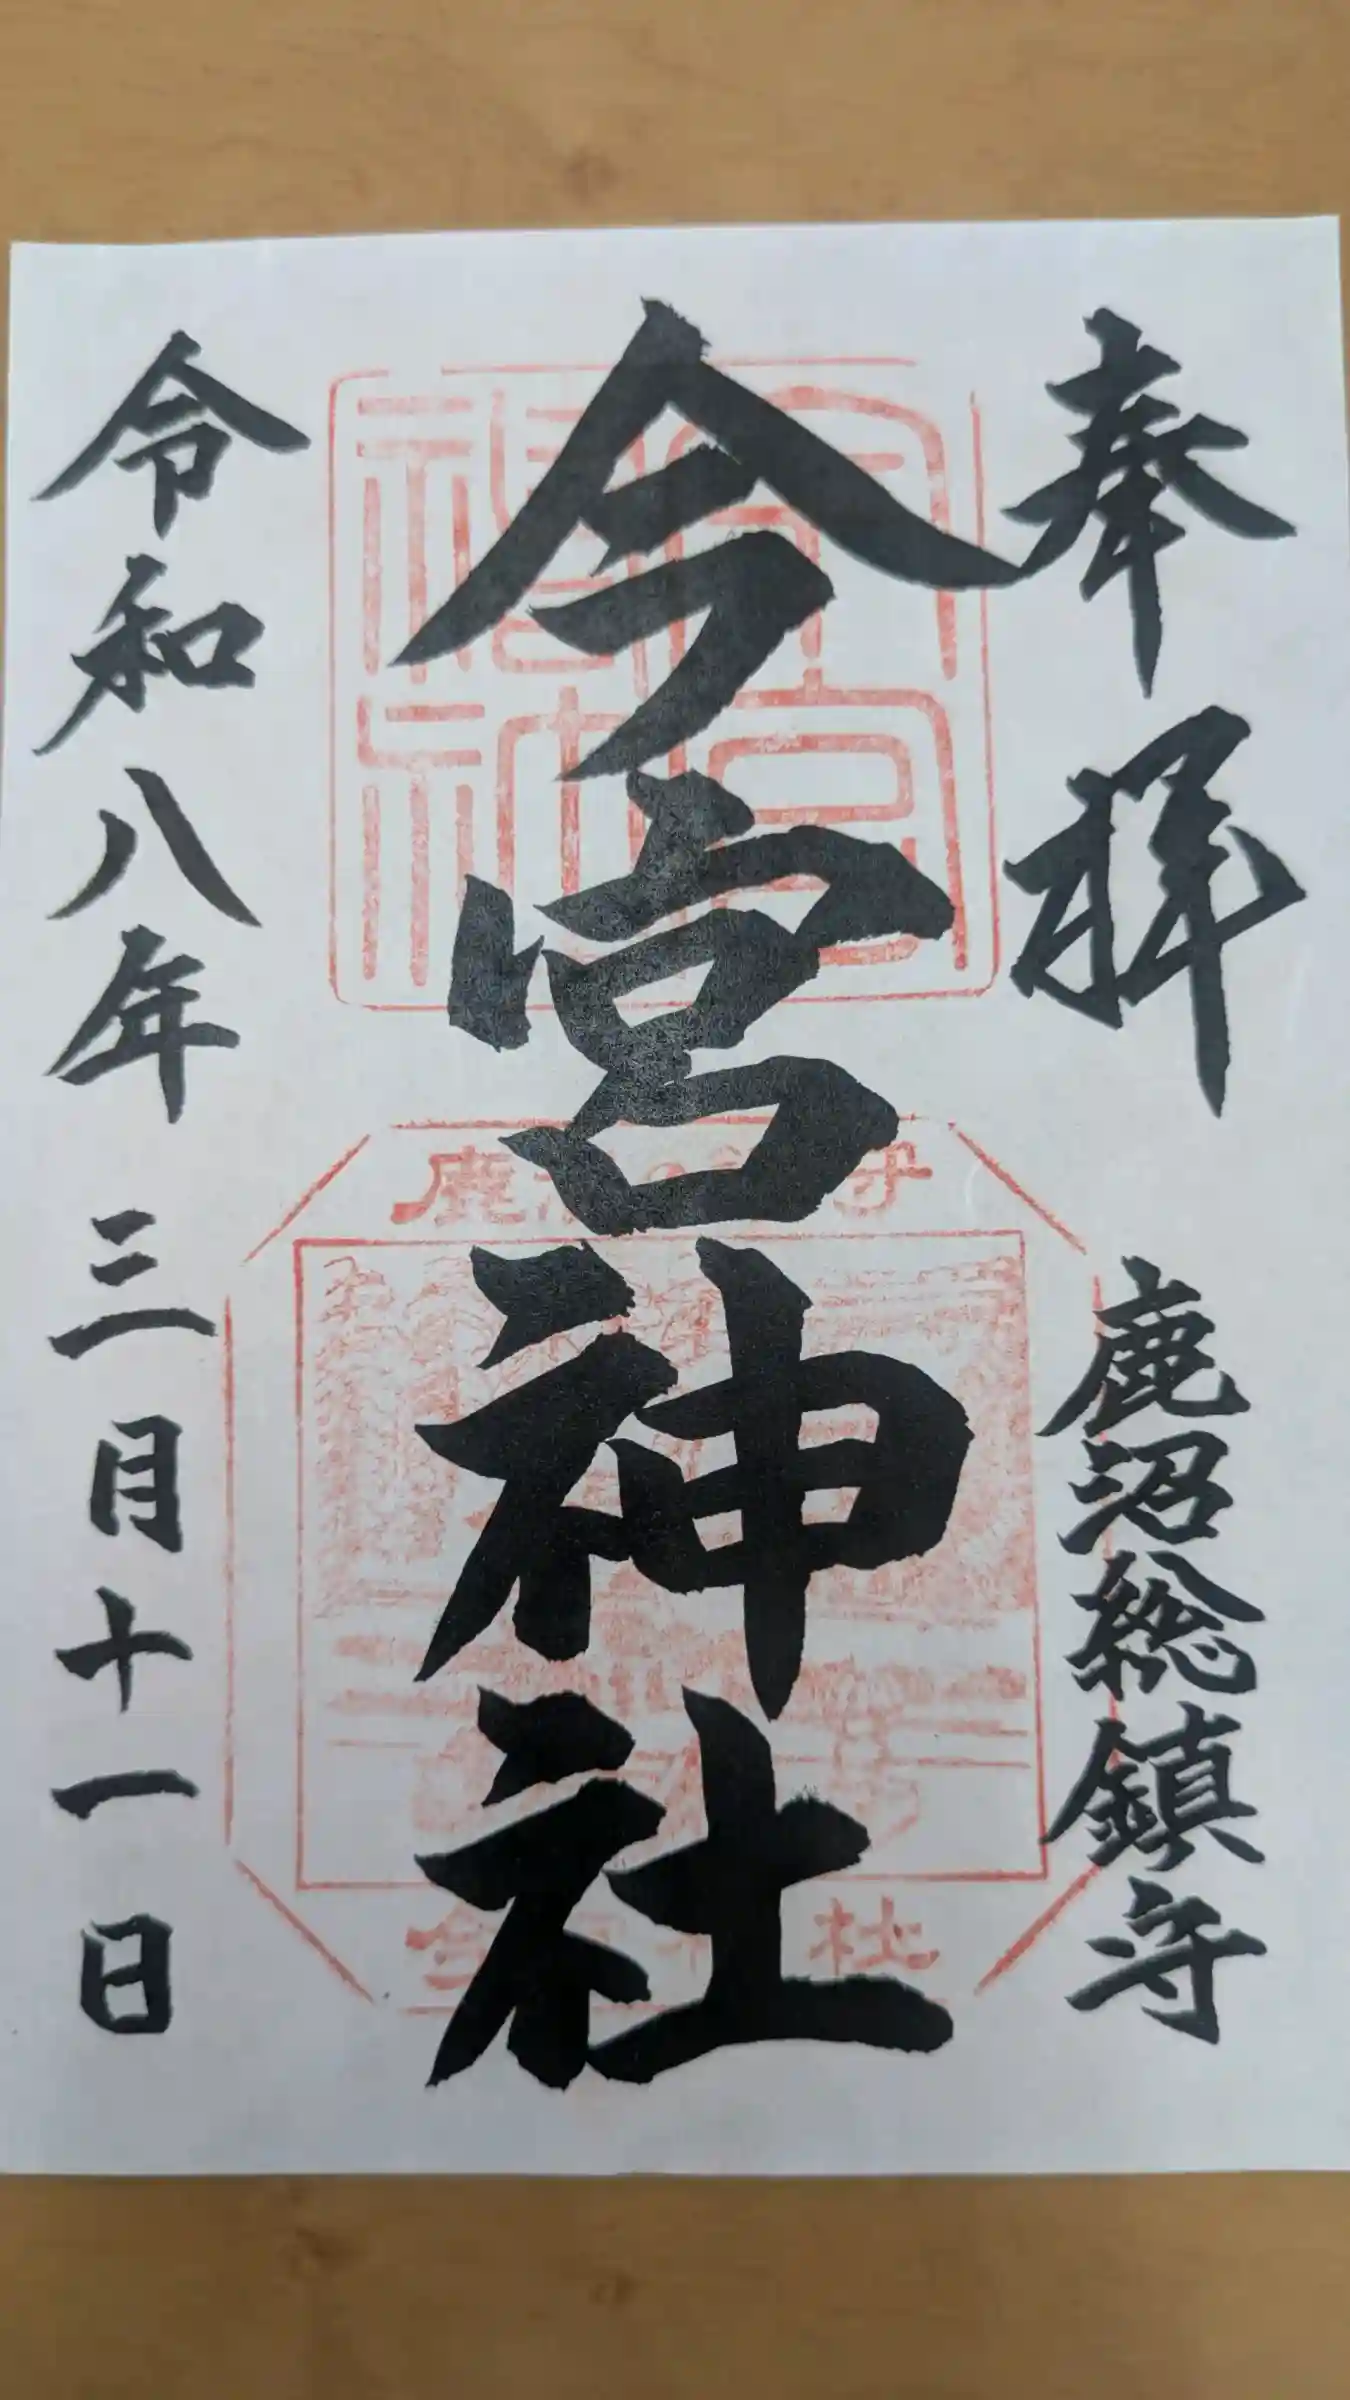 奉拝
鹿沼総鎮守
今宮神社
令和八年三月十一日